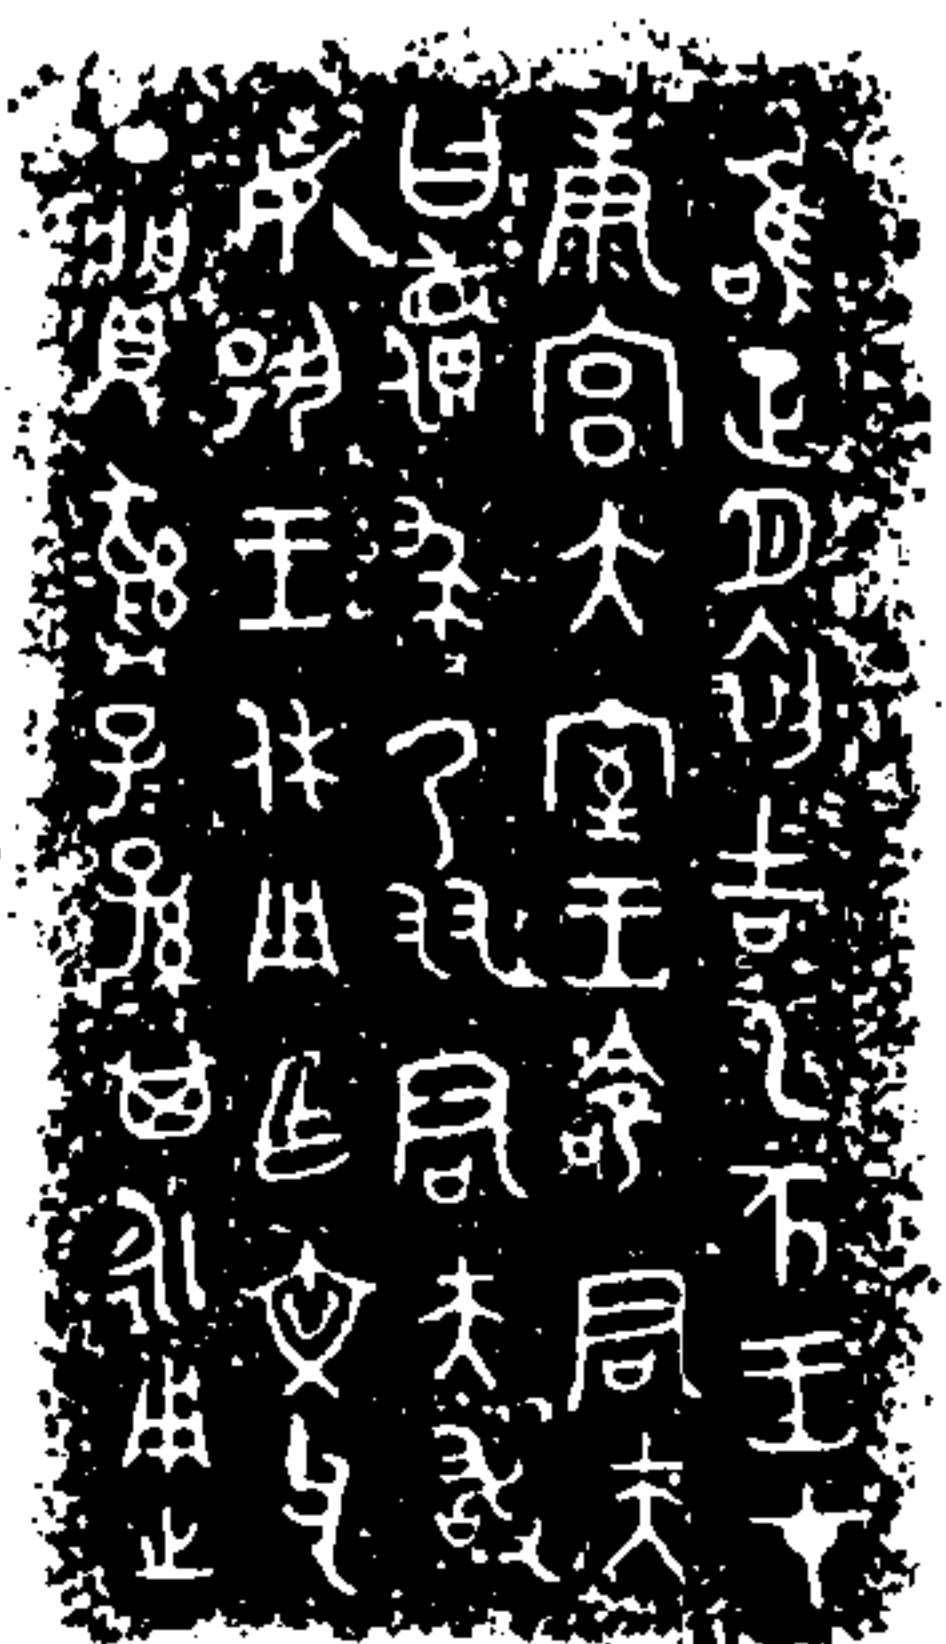 唯正月初吉乙亥王才
康宮大室王命君夫
曰儥求乃友君夫敢
揚王休用乍文父
丁䵼彝子子孫孫其永用之